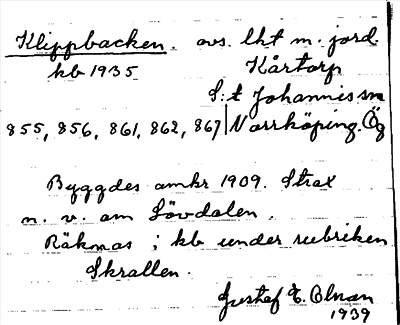 Klippbacken. avs. lht m. jord.
kb 1935 Kårtorp
S:t Johannis sn
855, 856, 861, 862, 867 Norrköping. Ög
Byggdes omkr 1909. Strax
n. v. om Lövdalen.
Räknas i kb under rubriken
Skrallen.
Gustef E. Olman
1939